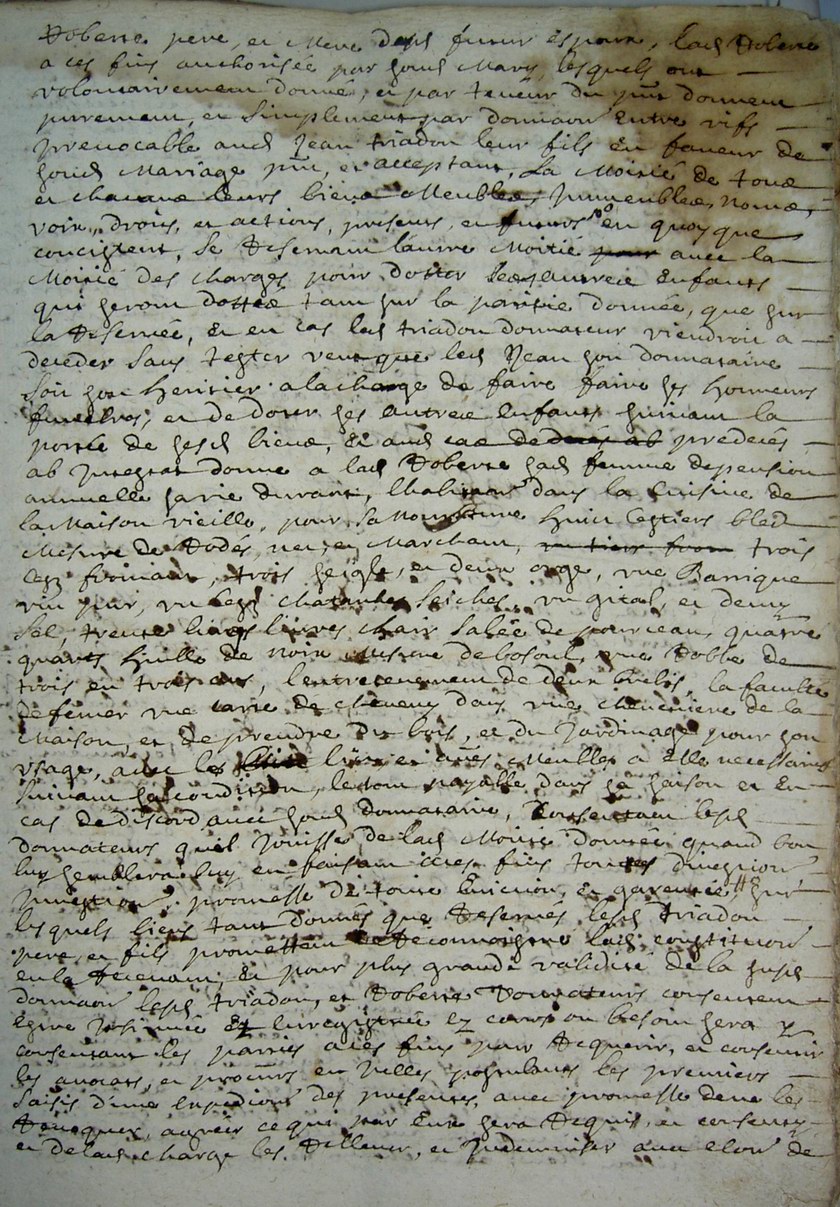 Roberte pere, et Mere desd futur espoux, lad Roberte
a ces fins authorisée par sond Mary, lesquels ont
volontairement donné, et par teneur du pnt donnent
purement, et simplement par donnaon Entre vifs
Yrrevocable aud Jean triadou leur fils En faveur de
sond Mariage pnt, et acceptant, La Moitié de tous
et chacuns leurs biens Meubles, Jmmeubles, Noms,
voix, droits, et actions, presents, et futurs en quoy que
concistent, Se Reservant l'autre Moitié avec la
Moitié des charges pour dotter les autres Enfants
qui seront dottés tant sur la partie donnée, que sur
la Reservée, Et en cas led triadou donnateur viendroit a
deceder Sans tester veut que led Jean son donnataire
Soit son Heritier a la charge de faire faire ses Honneurs
funebres, et de doter ses autres Enfants suivant la
portée de sesd biens, Et aud cas predeces
ab jntestat donne a lad Roberte sad femme de pension
annuelle sa vie durant, l'habitaon dans la Cuisine de
la Maison vieille, pour Sa Nourriture Huit Cestiers bled
Mesure de Rodés, net, et Marchant, trois
Cest froment, trois seigle, et deux orge, une Barrique
vin pur, un Cest Chataintes Seiches, un qual, et demy
Sel, trente livres chair Salée de pourceau, quatre
quarts Huille de Noix Mesure de bosouls, une Robbe de
trois en trois ans, l'entretenement de deux brebis, la faculté
de semer une de cheneny dans une cheneviere de la
Maison, et de prendre du bois, et du Jardinage pour son
usage, avec les lits et autres Meubles a Elle necessaires
Suivant sa condition, le tout payable dans sa saison et En
cas de discord avec sond donnataire, Consentant lesd
donnateurs qu'il Jouisse de lad Moitié donnée quand bon
luy semblera luy en faisant a ces fins toutes
promesse de toute Eviction, et garentie, Sur
lesquels biens tant donnés que Reservés lesd triadou
pere, et fils promettent Reconnoistre lad constitution
en la Recevant, Et pour plus grande validité de la susd
donnaon lesd triadou, et Roberte Donnateurs consentent
Estre Jnsinuée Et Enregistrée ez cours ou besoin sera
consentant les parties a ces fins pour Requerir, et consentir
les avocats, et procurs en jcelles postulants les premiers
Saisis d'une Expedition des presentes avec promesse de ne les
Revoquer, agréer ce qui par Eux sera Requis, et consenty
et de lad charge les Relever, et Jndemniser avec de